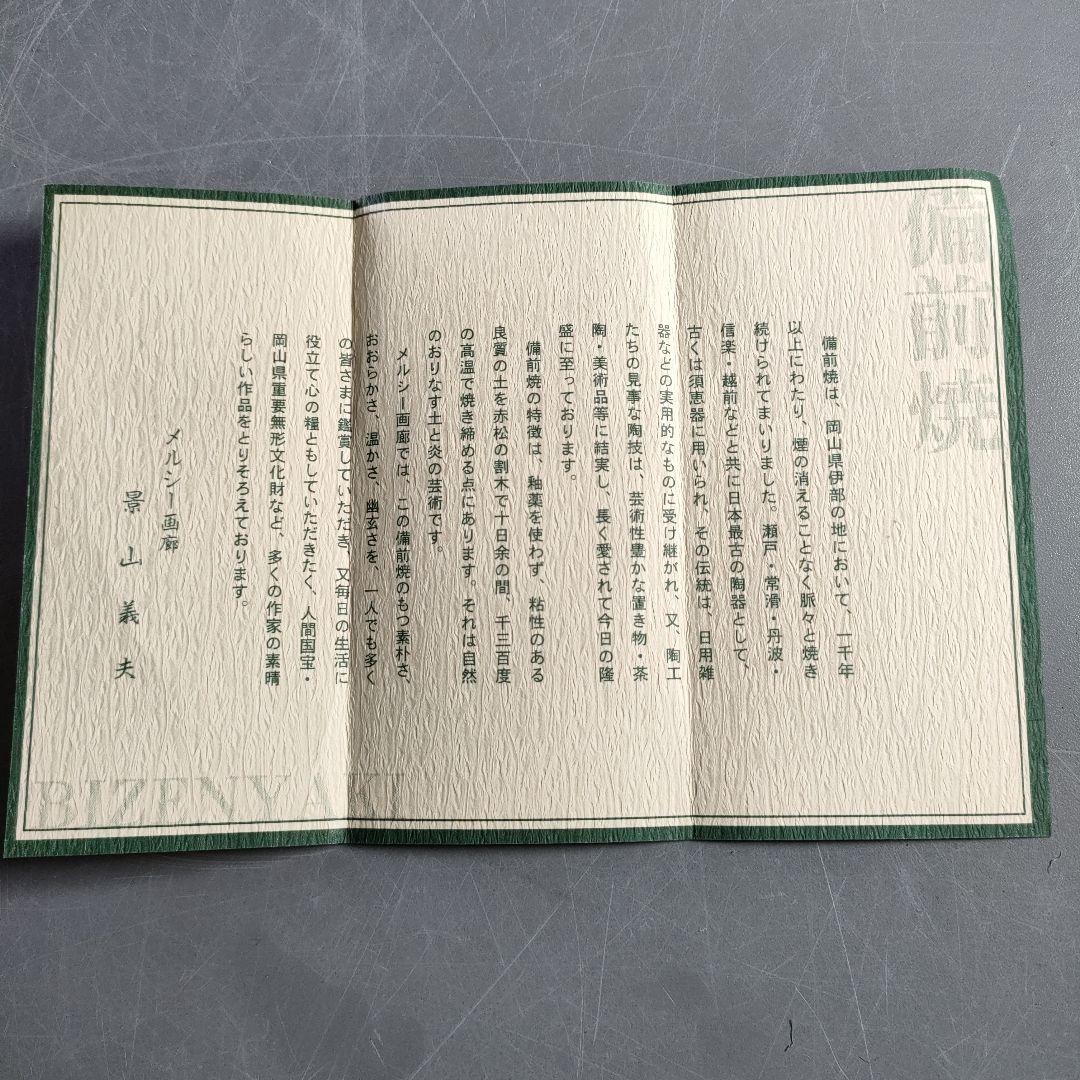 備前焼
備前焼は、岡山県伊部の地において、一千年
以上にわたり、煙の消えることなく脈々と焼き
続けられてまいりました。瀬戸・常滑・丹波・
信楽・越前などと共に日本最古の陶器として、
古くは須恵器に用いられ、その伝統は、日用雑
器などの実用的なものに受け継がれ、又、陶工
たちの見事な陶技は、芸術性豊かな置き物・茶
陶・美術品等に結実し、長く愛されて今日の隆
盛に至っております。
備前焼の特徴は、釉薬を使わず、粘性のある
良質の土を赤松の割木で十日余の間、千三百度
の高温で焼き締める点にあります。それは自然
のおりなす土と炎の芸術です。
メルシー画廊では、この備前焼のもつ素朴さ、
おおらかさ、温かさ、幽玄さを、一人でも多く
の皆さまに鑑賞していただき、又毎日の生活に
役立て心の糧ともしていただきたく、人間国宝・
岡山県重要無形文化財など、多くの作家の素晴
らしい作品をとりそろえております。
メルシー画廊
景山義夫
BIZENYAKI